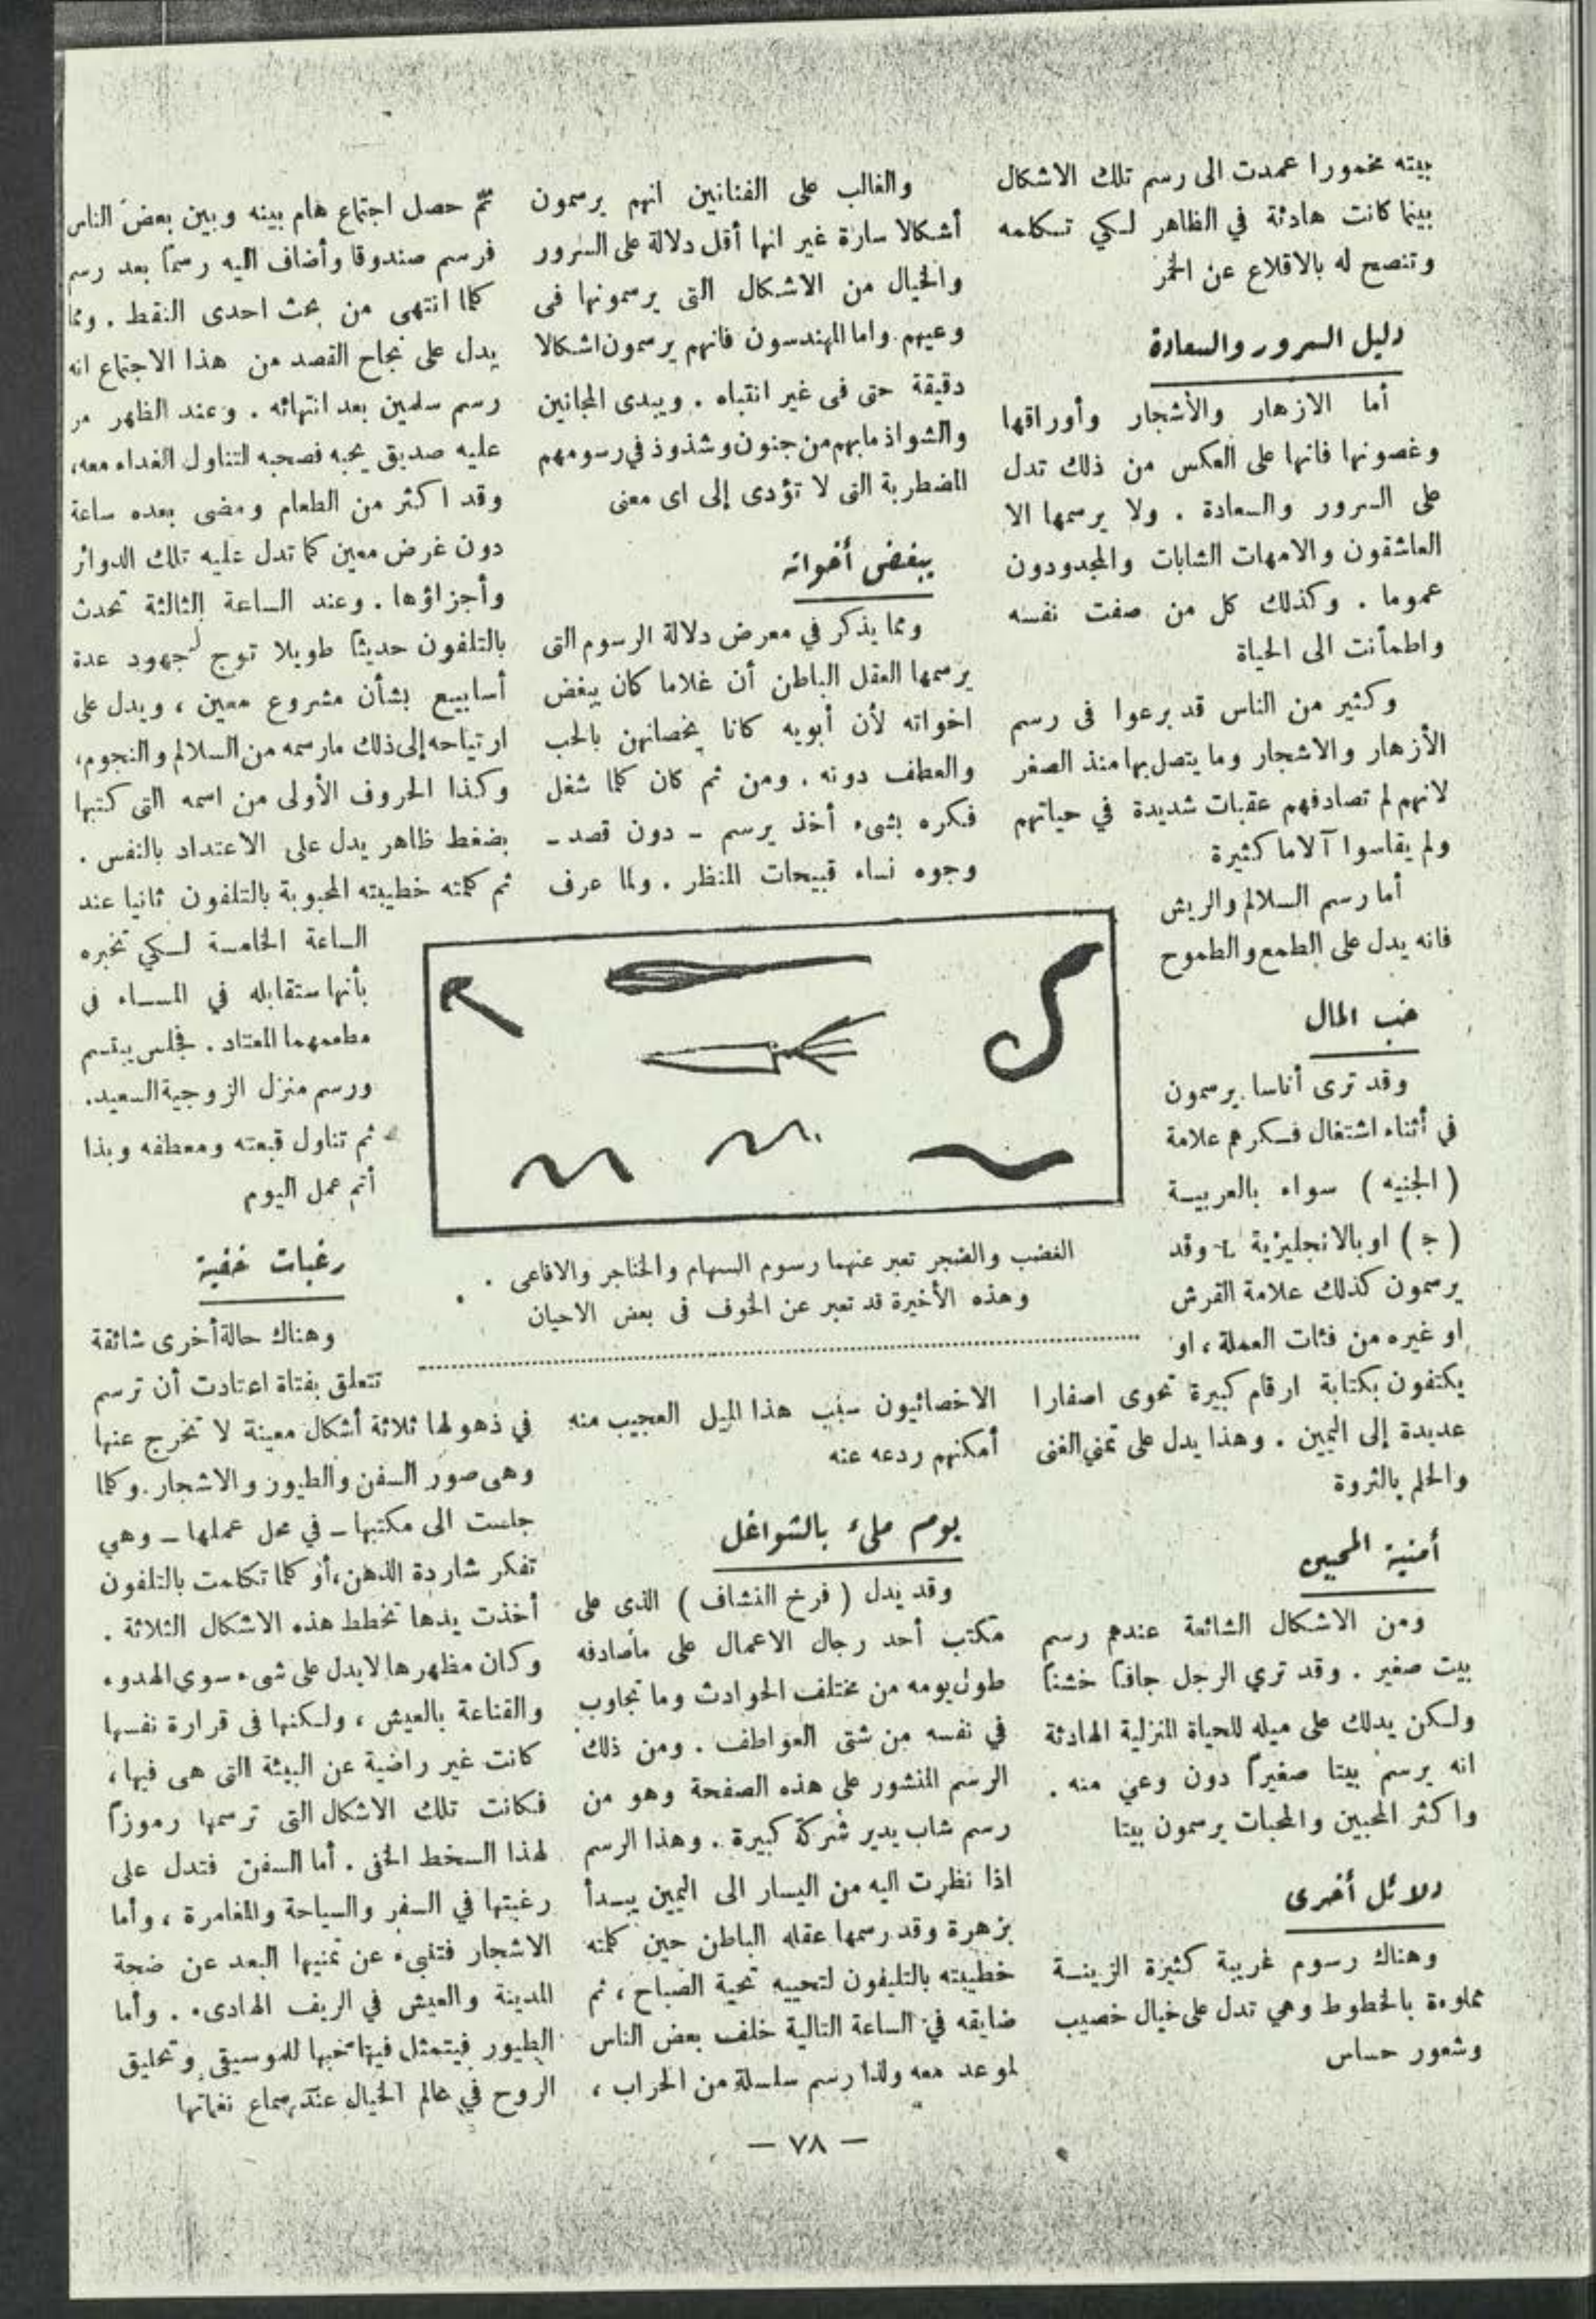 بيته مخمورا عمدت الى رسم تلك الاشكال
بينما كانت هادئة في الظاهر لكي تكلمه
وتنصح له بالاقلاع عن الخمر
دليل السرور والسعادة
أما الازهار والأشجار وأوراقها
وغصونها فانها على العكس من ذلك تدل
على السرور والسعادة . ولا يرسمها الا
العاشقون والامهات الشابات والمجدودون
عموما . وكذلك كل من صفت نفسه
واطمأنت الى الحياة
وكثير من الناس قد برعوا فى رسم
الأزهار والاشجار وما يتصل بها منذ الصغر
لانهم لم تصادفهم عقبات شديدة في حياتهم
ولم يقاسوا آلاما كثيرة
أما رسم السلالم والريش
فانه يدل على الطمع والطموح
حب المال
وقد ترى أناسا يرسمون
في أثناء اشتغال فكرهم علامة
( الجنيه ) سواء بالعربية
( ج ) او بالانجليزية £ وقد
يرسمون كذلك علامة القرش
او غيره من فئات العملة ، او
يكتفون بكتابة ارقام كبيرة تحوى اصفارا
عديدة إلى اليمين . وهذا يدل على تمني الغنى
والحلم بالثروة
أمنية المحبين
ومن الاشكال الشائعة عندهم رسم
بيت صغير . وقد تري الرجل جافا خشنا
ولكن يدلك على ميله للحياة المنزلية الهادئة
انه يرسم بيتا صغيراً دون وعي منه .
واكثر المحبين والمحبات يرسمون بيتا
دلائل أخرى
وهناك رسوم غريبة كثيرة الزينة
مملوءة بالخطوط وهي تدل على خيال خصيب
وشعور حساس
والغالب على الفنانين انهم يرسمون
أشكالا سارة غير انها أقل دلالة على السرور
والخيال من الاشكال التى يرسمونها فى
وعيهم . واما المهندسون فانهم يرسمون اشكالا
دقيقة حتى فى غير انتباه . ويبدى المجانين
والشواذ ما بهم من جنون وشذوذ في رسومهم
المضطربة التى لا تؤدى إلى اى معنى
يبغض أخواته
ومما يذكر في معرض دلالة الرسوم التى
يرسمها العقل الباطن أن غلاما كان يبغض
اخواته لأن أبويه كانا يخصانهن بالحب
والعطف دونه . ومن ثم كان كلما شغل
فكره بشىء أخذ يرسم - دون قصد -
وجوه نساء قبيحات المنظر . ولما عرف
الغضب والضجر تعبر عنهما رسوم السهام والخناجر والافاعى .
وهذه الأخيرة قد تعبر عن الخوف فى بعض الاحيان
الاخصائيون سبب هذا الميل العجيب منه
أمكنهم ردعه عنه
يوم ملىء بالشواغل
وقد يدل ( فرخ النشاف ) الذى على
مكتب أحد رجال الاعمال على ماصادفه
طول يومه من مختلف الحوادث وما تجاوب
في نفسه من شتى العواطف . ومن ذلك
الرسم المنشور على هذه الصفحة وهو من
رسم شاب يدير شركة كبيرة . وهذا الرسم
اذا نظرت اليه من اليسار الى اليمين يبدأ
بزهرة وقد رسمها عقله الباطن حين كلمته
خطيبته بالتليفون لتحييه تحية الصباح ، ثم
ضايقه في الساعة التالية خلف بعض الناس
لموعد معه ولذا رسم سلسلة من الحراب ،
ثم حصل اجتماع هام بينه وبين بعض الناس
فرسم صندوقا وأضاف اليه رسماً بعد رسم
كلما انتهى من بحث احدى النقط . ومما
يدل على نجاح القصد من هذا الاجتماع انه
رسم سلمين بعد انتهائه . وعند الظهر مر
عليه صديق يحبه فصحبه لتناول الغداء معه ،
وقد اكثر من الطعام ومضى بعده ساعة
دون غرض معين كما تدل عليه تلك الدوائر
وأجزاؤها . وعند الساعة الثالثة تحدث
بالتلفون حديثا طويلا توج جهود عدة
أسابيع بشأن مشروع معين ، ويدل على
ارتياحه إلى ذلك مارسمه من السلالم والنجوم ،
وكذا الحروف الأولى من اسمه التى كتبها
بضغط ظاهر يدل على الاعتداد بالنفس .
ثم كلمته خطيبته المحبوبة بالتلفون ثانيا عند
الساعة الخامسة لكي تخبره
بأنها ستقابله في المساء فى
مطعمهما المعتاد . فجلس يبتسم
ورسم منزل الزوجية السعيد .
ثم تناول قبعته ومعطفه وبذا
أتم عمل اليوم
رغبات خفية
وهناك حالة أخرى شائقة
تتعلق بفتاة اعتادت أن ترسم
في ذهولها ثلاثة أشكال معينة لا تخرج عنها
وهى صور السفن والطيور والاشجار . وكلما
جلست الى مكتبها - في محل عملها - وهي
تفكر شاردة الذهن ، أو كلما تكلمت بالتلفون
أخذت يدها تخطط هذه الاشكال الثلاثة .
وكان مظهرها لايدل على شىء سوي الهدوء
والقناعة بالعيش ، ولكنها فى قرارة نفسها
كانت غير راضية عن البيئة التى هى فيها ،
فكانت تلك الاشكال التى ترسمها رموزاً
لهذا السخط الخفى . أما السفن فتدل على
رغبتها في السفر والسياحة والمغامرة ، وأما
الاشجار فتنبىء عن تمنيها البعد عن ضجة
المدينة والعيش في الريف الهادىء . وأما
الطيور فيتمثل فيها حبها للموسيقى وتحليق
الروح في عالم الخيال عند سماع نغماتها
— ٧٨ —